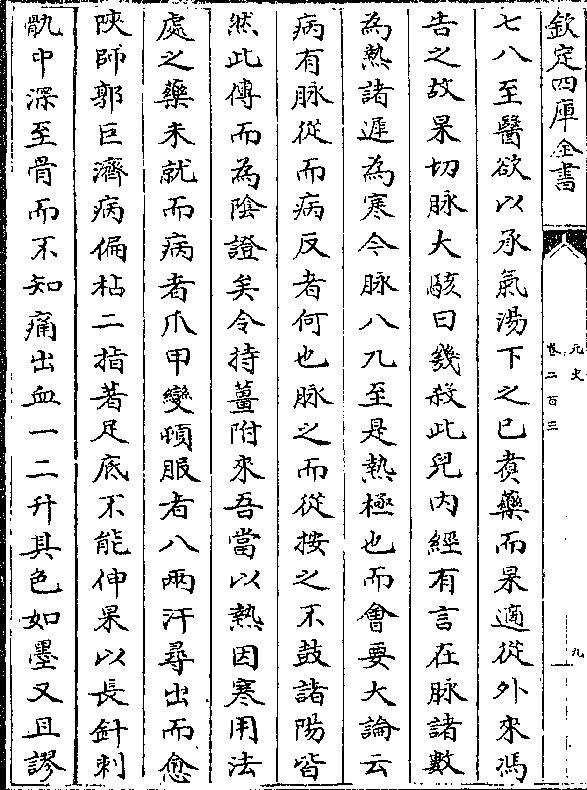 欽定四庫全書
元史
卷二百三
九
七八至醫欲以承氣湯下之已煑藥而杲適從外來馮
告之故杲切脉大駭曰幾殺此兒内經有言在脉諸數
為熱諸遲為寒今脉八九至是熱極也而會要大論云
病有脉從而病反者何也脉之而從按之不鼓諸陽皆
然此傳而為陰證矣令持薑附來吾當以熱因寒用法
處之藥未就而病者爪甲變頓服者八兩汗尋出而愈
陜師郭巨濟病偏枯二指著足底不能伸杲以長針刺
骩中深至骨而不知痛出血一二升其色如墨又且謬